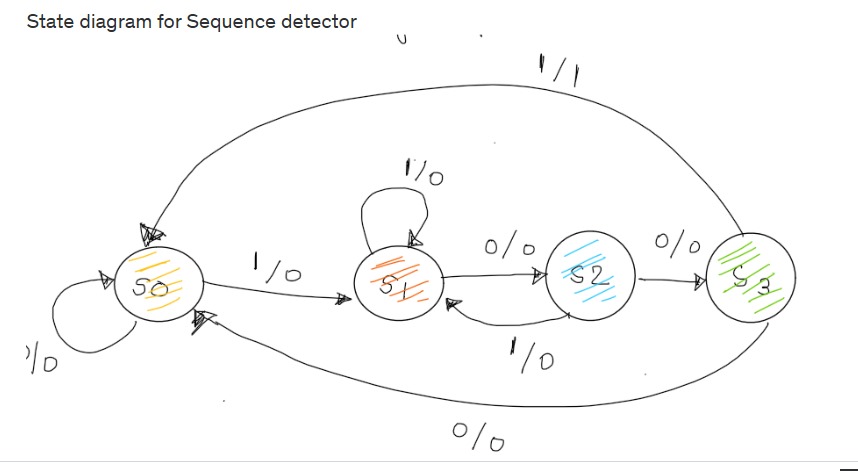 State diagram for Sequence detector
1/1
1/0
0/0
0/0
1/0
S0
S1
S2
S3
1/0
0/0